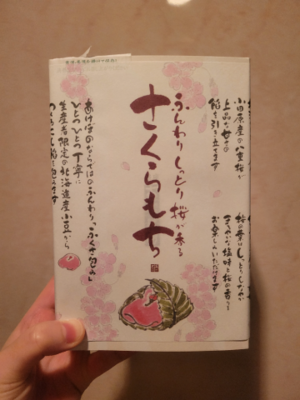 小田原産の八重桜が
上品な甘さの
餡を引き立てます
ふんわりしっとり桜が香る
さくらもち
あけぼのならではのふんわりふくさ包み
ひとつひとつ丁寧に
生産者限定の北海道産小豆から
桜の葉はしっとりしなやか
まろやかな塩味と桜の香りを
お楽しみいただけます